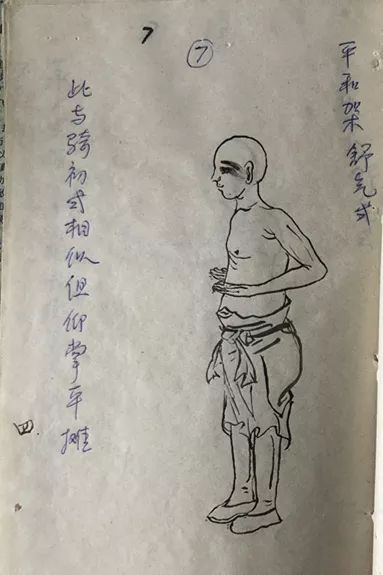 7
⑦
平和架舒气式
此与骑初式相似但仰掌平摊
四.